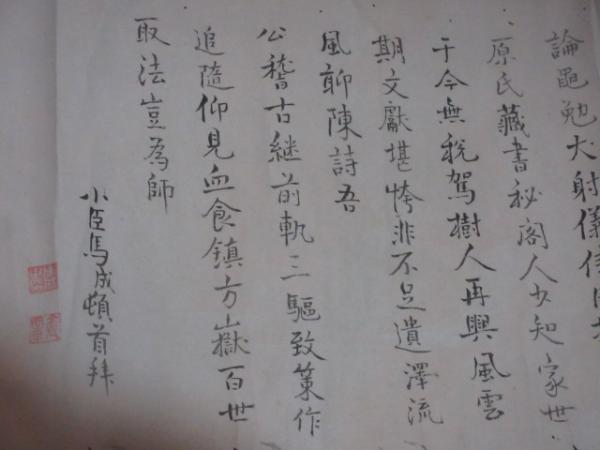 論黽勉大射儀
原氏藏書秘閣人少知家世
于今無稅駕樹人再興風雲
期文獻堪誇非不足遺澤流
風聊陳詩吾
公稽古継前軌三驅致策作
追隨仰見血食鎮方嶽百世
取法豈為師
小臣馬成頓首拜